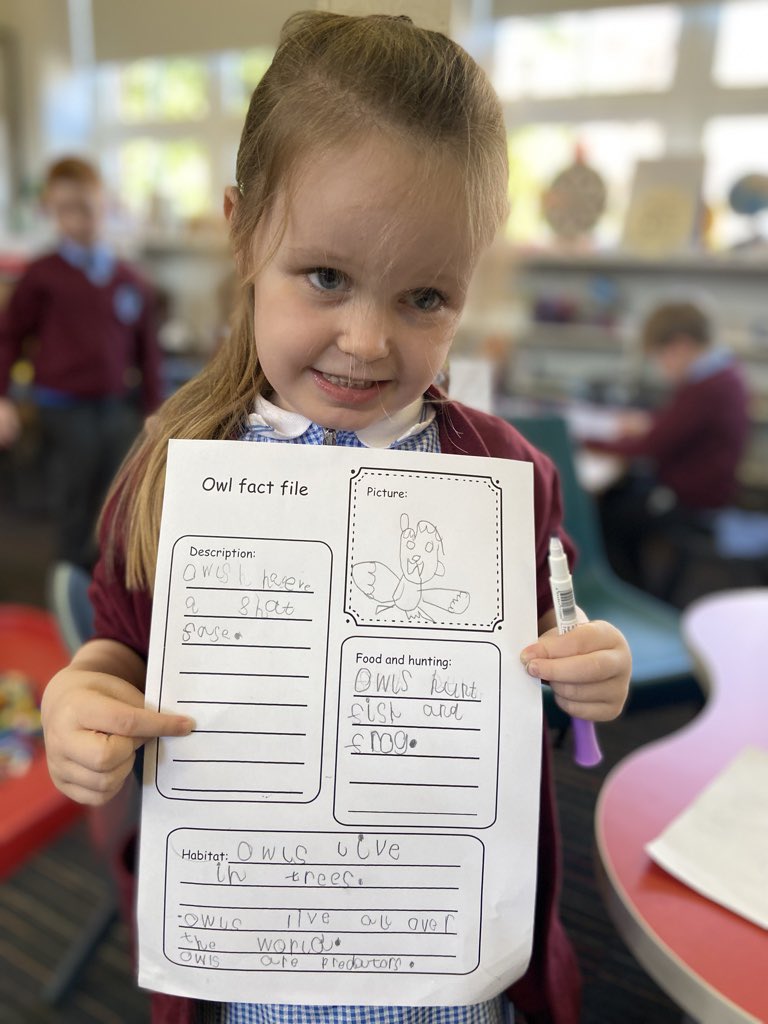 Owl fact file
Picture:
Description:
Owls h haeve
a shat
fase.
Food and hunting:
Owls hunt
fish and
frog.
Habitat: Owls live
in trees.
Owls live all over
the world.
Owls are predators.